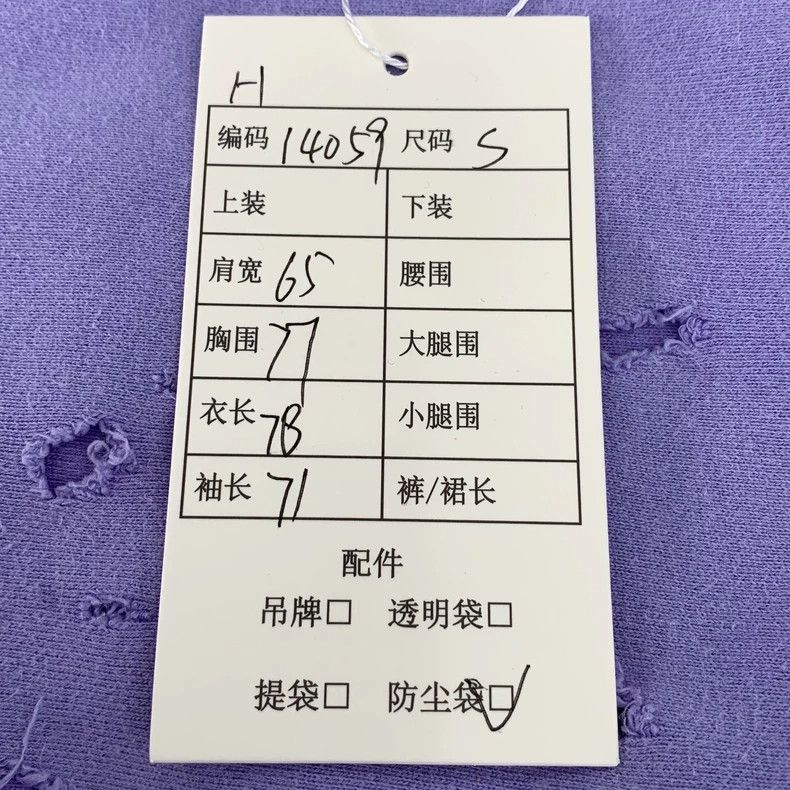 H
编码 14059 尺码 S
上装 下装
肩宽 65 腰围
胸围 77 大腿围
衣长 78 小腿围
袖长 71 裤/裙长
配件
吊牌□ 透明袋□
提袋□ 防尘袋□✓